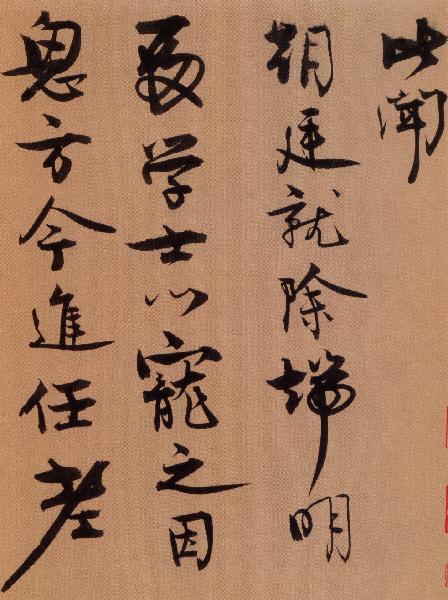 此聞
朝廷就除端明
殿学士以寵之因
思方今進任